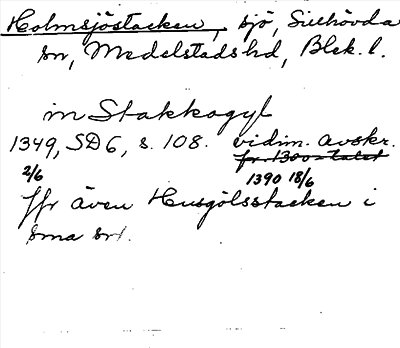 Holmsjöstacken, sjö, Sillhövda
sn, Medelstads hd, Blek. l.
in Stakkogyl
1349, SD 6, s. 108. vidim. avskr.
fr. 1300-talet
2/6 1390 18/6
Jfr även Husgölsstacken i
sma sn.